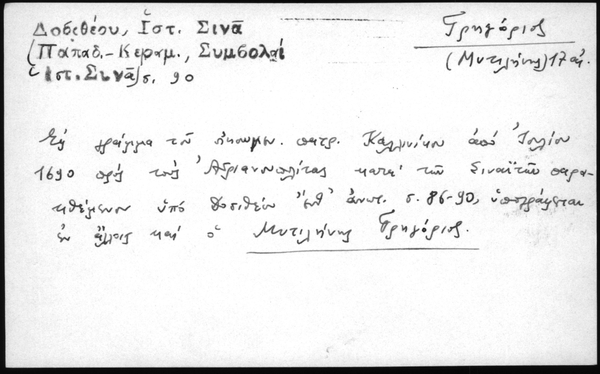 Δοσιθέου, Ἱστ. Σινᾶ
(Παπαδ.-Κεραμ., Συμβολαί
ἱστ. Σινᾶ) σ. 90
Γρηγόριος
(Μυτιλήνης) 17 αἰ.
Εἰς γράμμα τοῦ οἰκουμεν. πατρ. Καλλινίκου ἀπό Ἰουλίου
1690 πρός τούς Ἀδριανουπολίτας κατά τῶν Σιναϊτῶν παρα-
τιθέμενον ὑπό Δοσιθέου ἐνθ' ἀνωτ. σ. 86-90, ὑπογράφεται
ἐν ἄλλοις καί ὁ Μυτιλήνης Γρηγόριος.